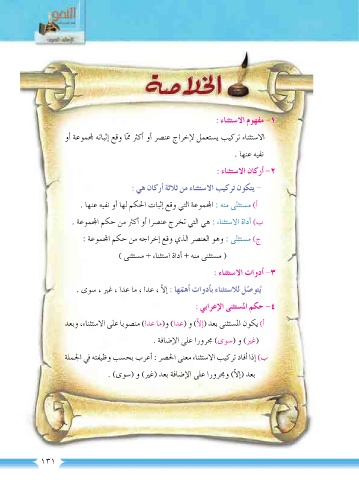 النحو
الخلاصة
١- مفهوم الاستثناء :
الاستثناء تركيب يستعمل لإخراج عنصر أو أكثر ممّا وقع إثباته لمجموعة أو
نفيه عنها .
٢- أركان الاستثناء :
- يتكون تركيب الاستثناء من ثلاثة أركان هي :
أ) مستثنى منه : المجموعة التي وقع إثبات الحكم لها أو نفيه عنها .
ب) أداة الاستثناء : هي التي تخرج عنصرا أو أكثر من حكم المجموعة .
ج) مستثنى : وهو العنصر الذي وقع إخراجه من حكم المجموعة :
( مستثنى منه + أداة استثناء + مستثنى )
٣- أدوات الاستثناء :
يُتوصّل للاستثناء بأدوات أهمّها : إلاّ ، عدا ، ما عدا ، غير ، سوى .
٤- حكم المستثنى الإعرابي :
أ) يكون المستثنى بعد (إلاّ) و (عدا) و(ما عدا) منصوبا على الاستثناء، وبعد
(غير) و (سوى) مجرورا على الإضافة .
ب) إذا أفاد تركيب الاستثناء معنى الحصر : أعرب بحسب وظيفته في الجملة
بعد (إلاّ) ومجرورا على الإضافة بعد (غير) و (سوى) .
١٣١